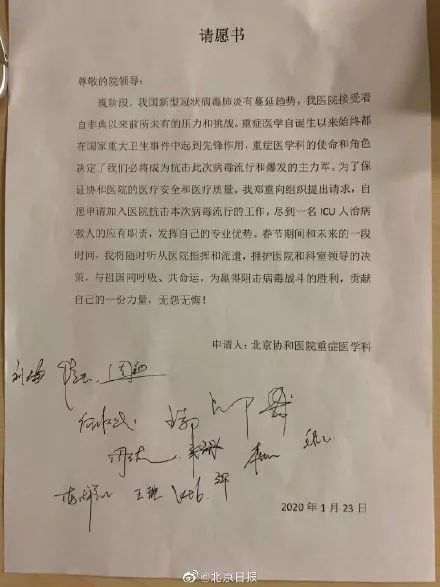 请愿书
尊敬的院领导：
现阶段，我国新型冠状病毒肺炎有蔓延趋势，我医院接受着
自非典以来前所未有的压力和挑战。重症医学自诞生以来始终都
在国家重大卫生事件中起到先锋作用，重症医学科的使命和角色
决定了我们必将成为抗击此次病毒流行和爆发的主力军。为了保
证协和医院的医疗安全和医疗质量。我郑重向组织提出请求，自
愿申请加入医院抗击本次病毒流行的工作，尽到一名 ICU 人治病
救人的应有职责，发挥自己的专业优势。春节期间和未来的一段
时间，我将随时听从医院指挥和派遣，拥护医院和科室领导的决
策，与祖国同呼吸、共命运，为赢得阻击病毒战斗的胜利，贡献
自己的一份力量，无怨无悔！
申请人：北京协和医院重症医学科
2020 年 1 月 23 日
@北京日报